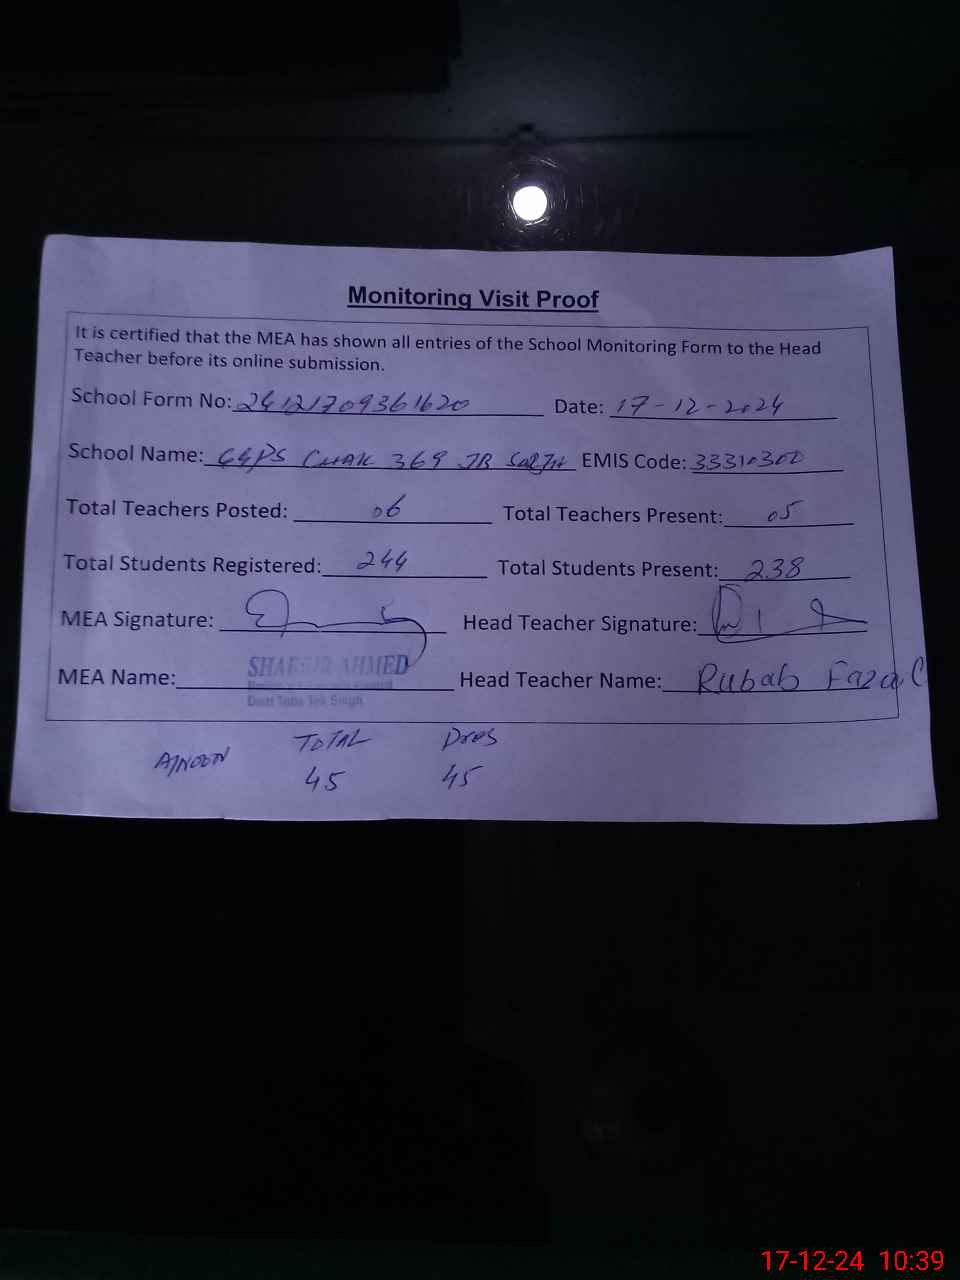 Monitoring Visit Proof
It is certified that the MEA has shown all entries of the School Monitoring Form to the Head
Teacher before its online submission.
School Form No: 24121709361620 Date: 17-12-2024
School Name: GGPS CHAK 369 JB EMIS Code: 33310300
Total Teachers Posted: 06 Total Teachers Present: 05
Total Students Registered: 244 Total Students Present: 238
MEA Signature: Head Teacher Signature:
MEA Name: AHMED Head Teacher Name: Rubab Fazal
Distt Toba Tek Singh
A/NOON TOTAL Pres
45 45
17-12-24 10:39